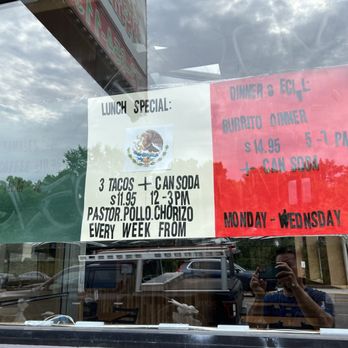 LUNCH SPECIAL:
3 TACOS + CAN SODA
$11.95 12-3PM
PASTOR.POLLO.CHORIZO
EVERY WEEK FROM
DINNER S ECI.L:
BURRITO DINNER
$14.95 5-3PM
+ CAN SODA
MONDAY - WEDNSDAY